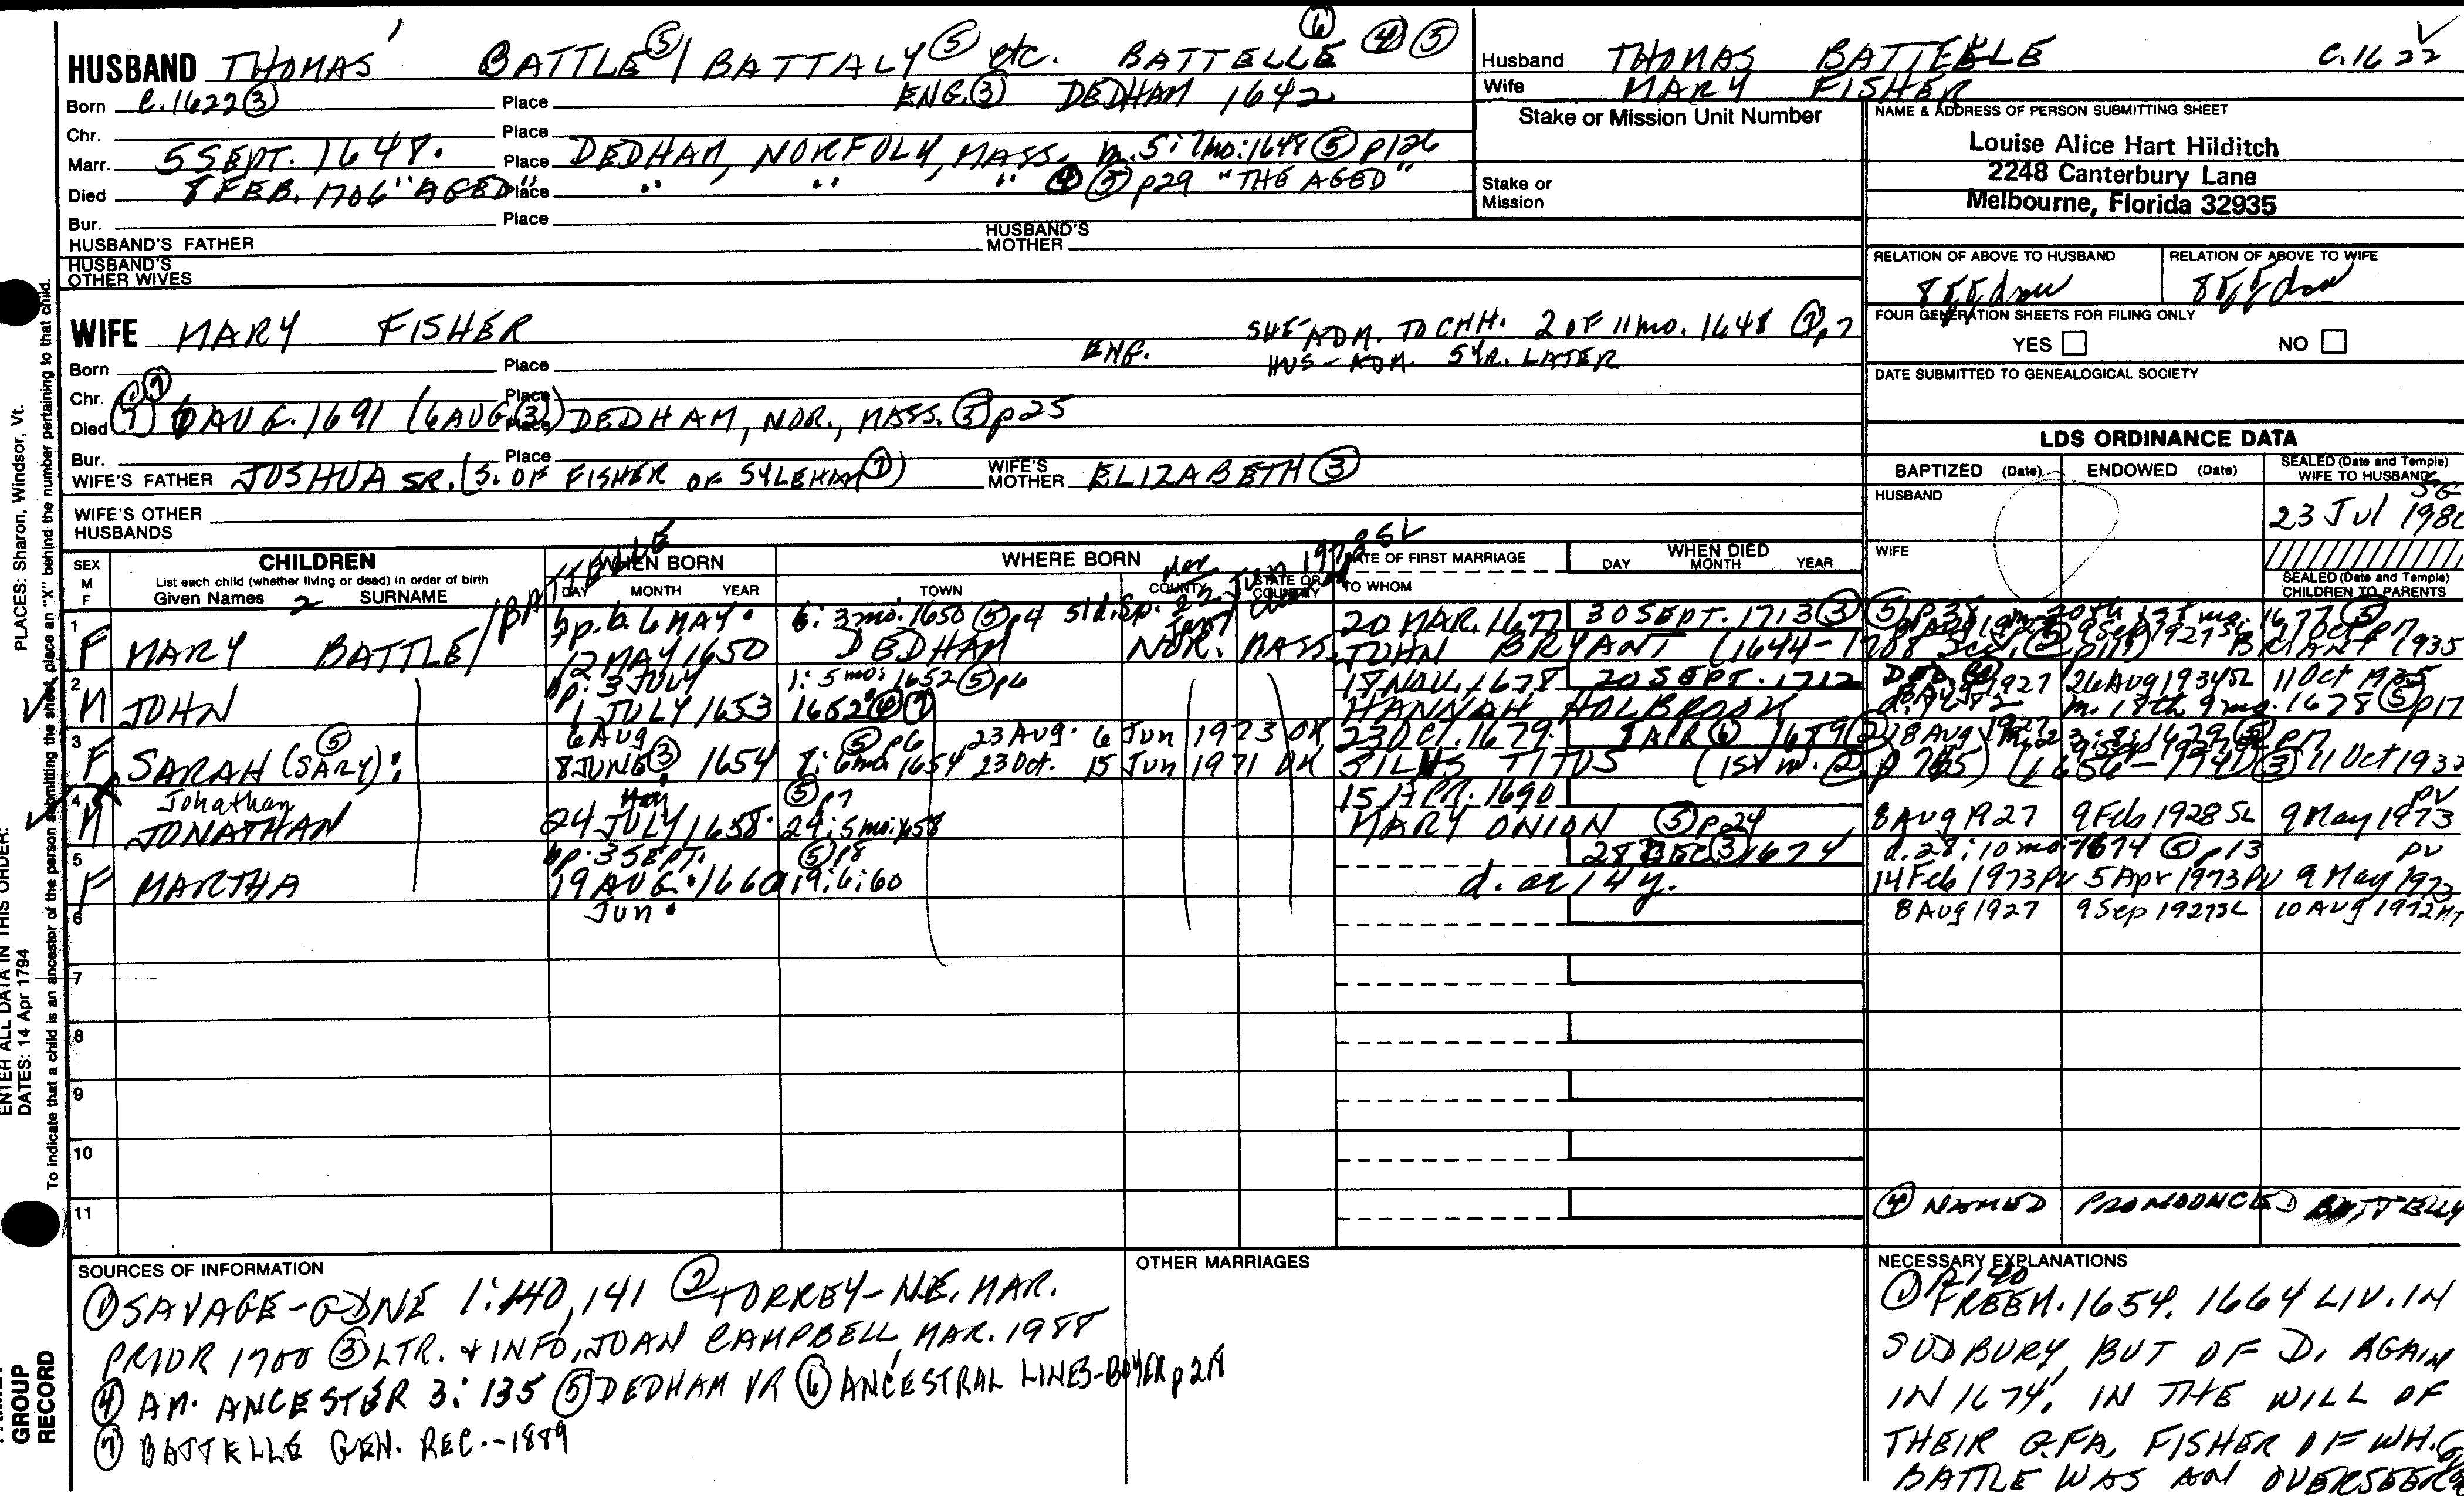 HUSBAND THOMAS BATTLE ⑤ / BATTALY ⑤ etc. BATTELLE ⑥ ④ ⑤
Born C.1622 ③ Place ENG. ③ DEDHAM 1642
Chr. Place
Marr. 5 SEPT. 1648. Place DEDHAM, NORFOLK, MASS. m. 5: 7mo: 1648 ⑤ p126
Died 8 FEB. 1706 "AGED" Place " " " ④ ⑤ p29 "THE AGED"
Bur. Place
HUSBAND'S FATHER HUSBAND'S MOTHER
HUSBAND'S OTHER WIVES
Husband THOMAS BATTELLE C.1622
Wife MARY FISHER
Stake or Mission Unit Number
Stake or Mission
NAME & ADDRESS OF PERSON SUBMITTING SHEET
Louise Alice Hart Hilditch
2248 Canterbury Lane
Melbourne, Florida 32935
RELATION OF ABOVE TO HUSBAND RELATION OF ABOVE TO WIFE
FOUR GENERATION SHEETS FOR FILING ONLY
YES NO
DATE SUBMITTED TO GENEALOGICAL SOCIETY
WIFE MARY FISHER
SHE-ADM. TO CHH. 2 OF 11 mo. 1648 ⑦ p7
HUS-ADM. 5 YR. LATER
Born Place ENG.
Chr. Place
Died ① ⑦ AUG. 1691 (6 AUG. ③) Place DEDHAM, NOR., MASS. ⑤ p25
Bur. Place
WIFE'S FATHER JOSHUA SR. (S. OF FISHER OF SYLEHAM ⑦) WIFE'S MOTHER ELIZABETH ③
WIFE'S OTHER HUSBANDS
LDS ORDINANCE DATA
BAPTIZED (Date) ENDOWED (Date) SEALED (Date and Temple) WIFE TO HUSBAND
HUSBAND SG
23 Jul 198
WIFE
SEALED (Date and Temple) CHILDREN TO PARENTS
SEX M F
CHILDREN
List each child (whether living or dead) in order of birth
Given Names 2 SURNAME
WHEN BORN
DAY MONTH YEAR
WHERE BORN
TOWN COUNTY STATE OR COUNTRY
DATE OF FIRST MARRIAGE
TO WHOM
WHEN DIED
DAY MONTH YEAR
1 bp. b. 6 MAY. 6: 3mo: 1650 ⑤ p4 20 MAR. 1677 30 SEPT. 1713 ③ ⑤ p38
F MARY BATTLE/BATTELLE 12 MAY 1650 DEDHAM NOR. MASS. JOHN BRYANT (1644-1708
2 bp: 3 JULY 1: 5 mo: 1652 ⑤ p6 18 NOV. 1678 20 SEPT. 1712 26 Aug 1934 SL 11 Oct 1935
M JOHN 1 JULY 1653 1652 ⑥ ⑦ HANNAH HOLBROOK m. 18th 9 mo. 1678 ⑤ p17
3 6 Aug ⑤ p6 23 Aug. 6 Jun 1973 OK 23 Oct. 1679.
F SARAH (SARY) ⑤: 8 JUNE ③ 1654 8: 6mo 1654 23 Oct. 15 Jun 1971 OK SILAS TITUS (1st m. ②
4 Johathan ⑤ p7 15 APR. 1690
M JONATHAN 24 JULY 1658. 24: 5mo: 58 MARY ONION ⑤ p24 8 Aug 1927 9 Feb 1928 SL 9 May 1973 PV
5 bp: 3 SEPT. ⑤ p8 28 DEC ③ 1674 d. 28: 10 mo: 1674 ⑤ p13
F MARTHA 19 AUG. 1660 19: 6: 60 d. ae 14 y. 14 Feb 1973 PV 5 Apr 1973 PV 9 May 1973 PV
6 Jun. 8 Aug 1927 9 Sep 1927 SL 10 Aug 1972
7
8
9
10
11 ④ NAMED PRONOUNCED BATTELLY
SOURCES OF INFORMATION
① SAVAGE-GDNE 1:140, 141 ② TORREY-N.E. MAR.
PRIOR 1700 ③ LTR. & INFO, JOAN CAMPBELL, MAR. 1988
④ AM. ANCESTER 3: 135 ⑤ DEDHAM VR ⑥ ANCESTRAL LINES-BOYER p 218
⑦ BATTELLE GEN. REC.-1889
OTHER MARRIAGES
NECESSARY EXPLANATIONS
① P140
FREEM. 1654. 1664 LIV. IN
SUDBURY, BUT OF D. AGAIN
IN 1674. IN THE WILL OF
THEIR G.FA. FISHER OF WH.
BATTLE WAS AN OVERSEER
PLACES: Sharon, Windsor, Vt.
ENTER ALL DATA IN THIS ORDER:
DATES: 14 Apr 1794
To indicate that a child is an ancestor of the person submitting the sheet, place an "X" behind the number pertaining to that child.
GROUP
RECORD